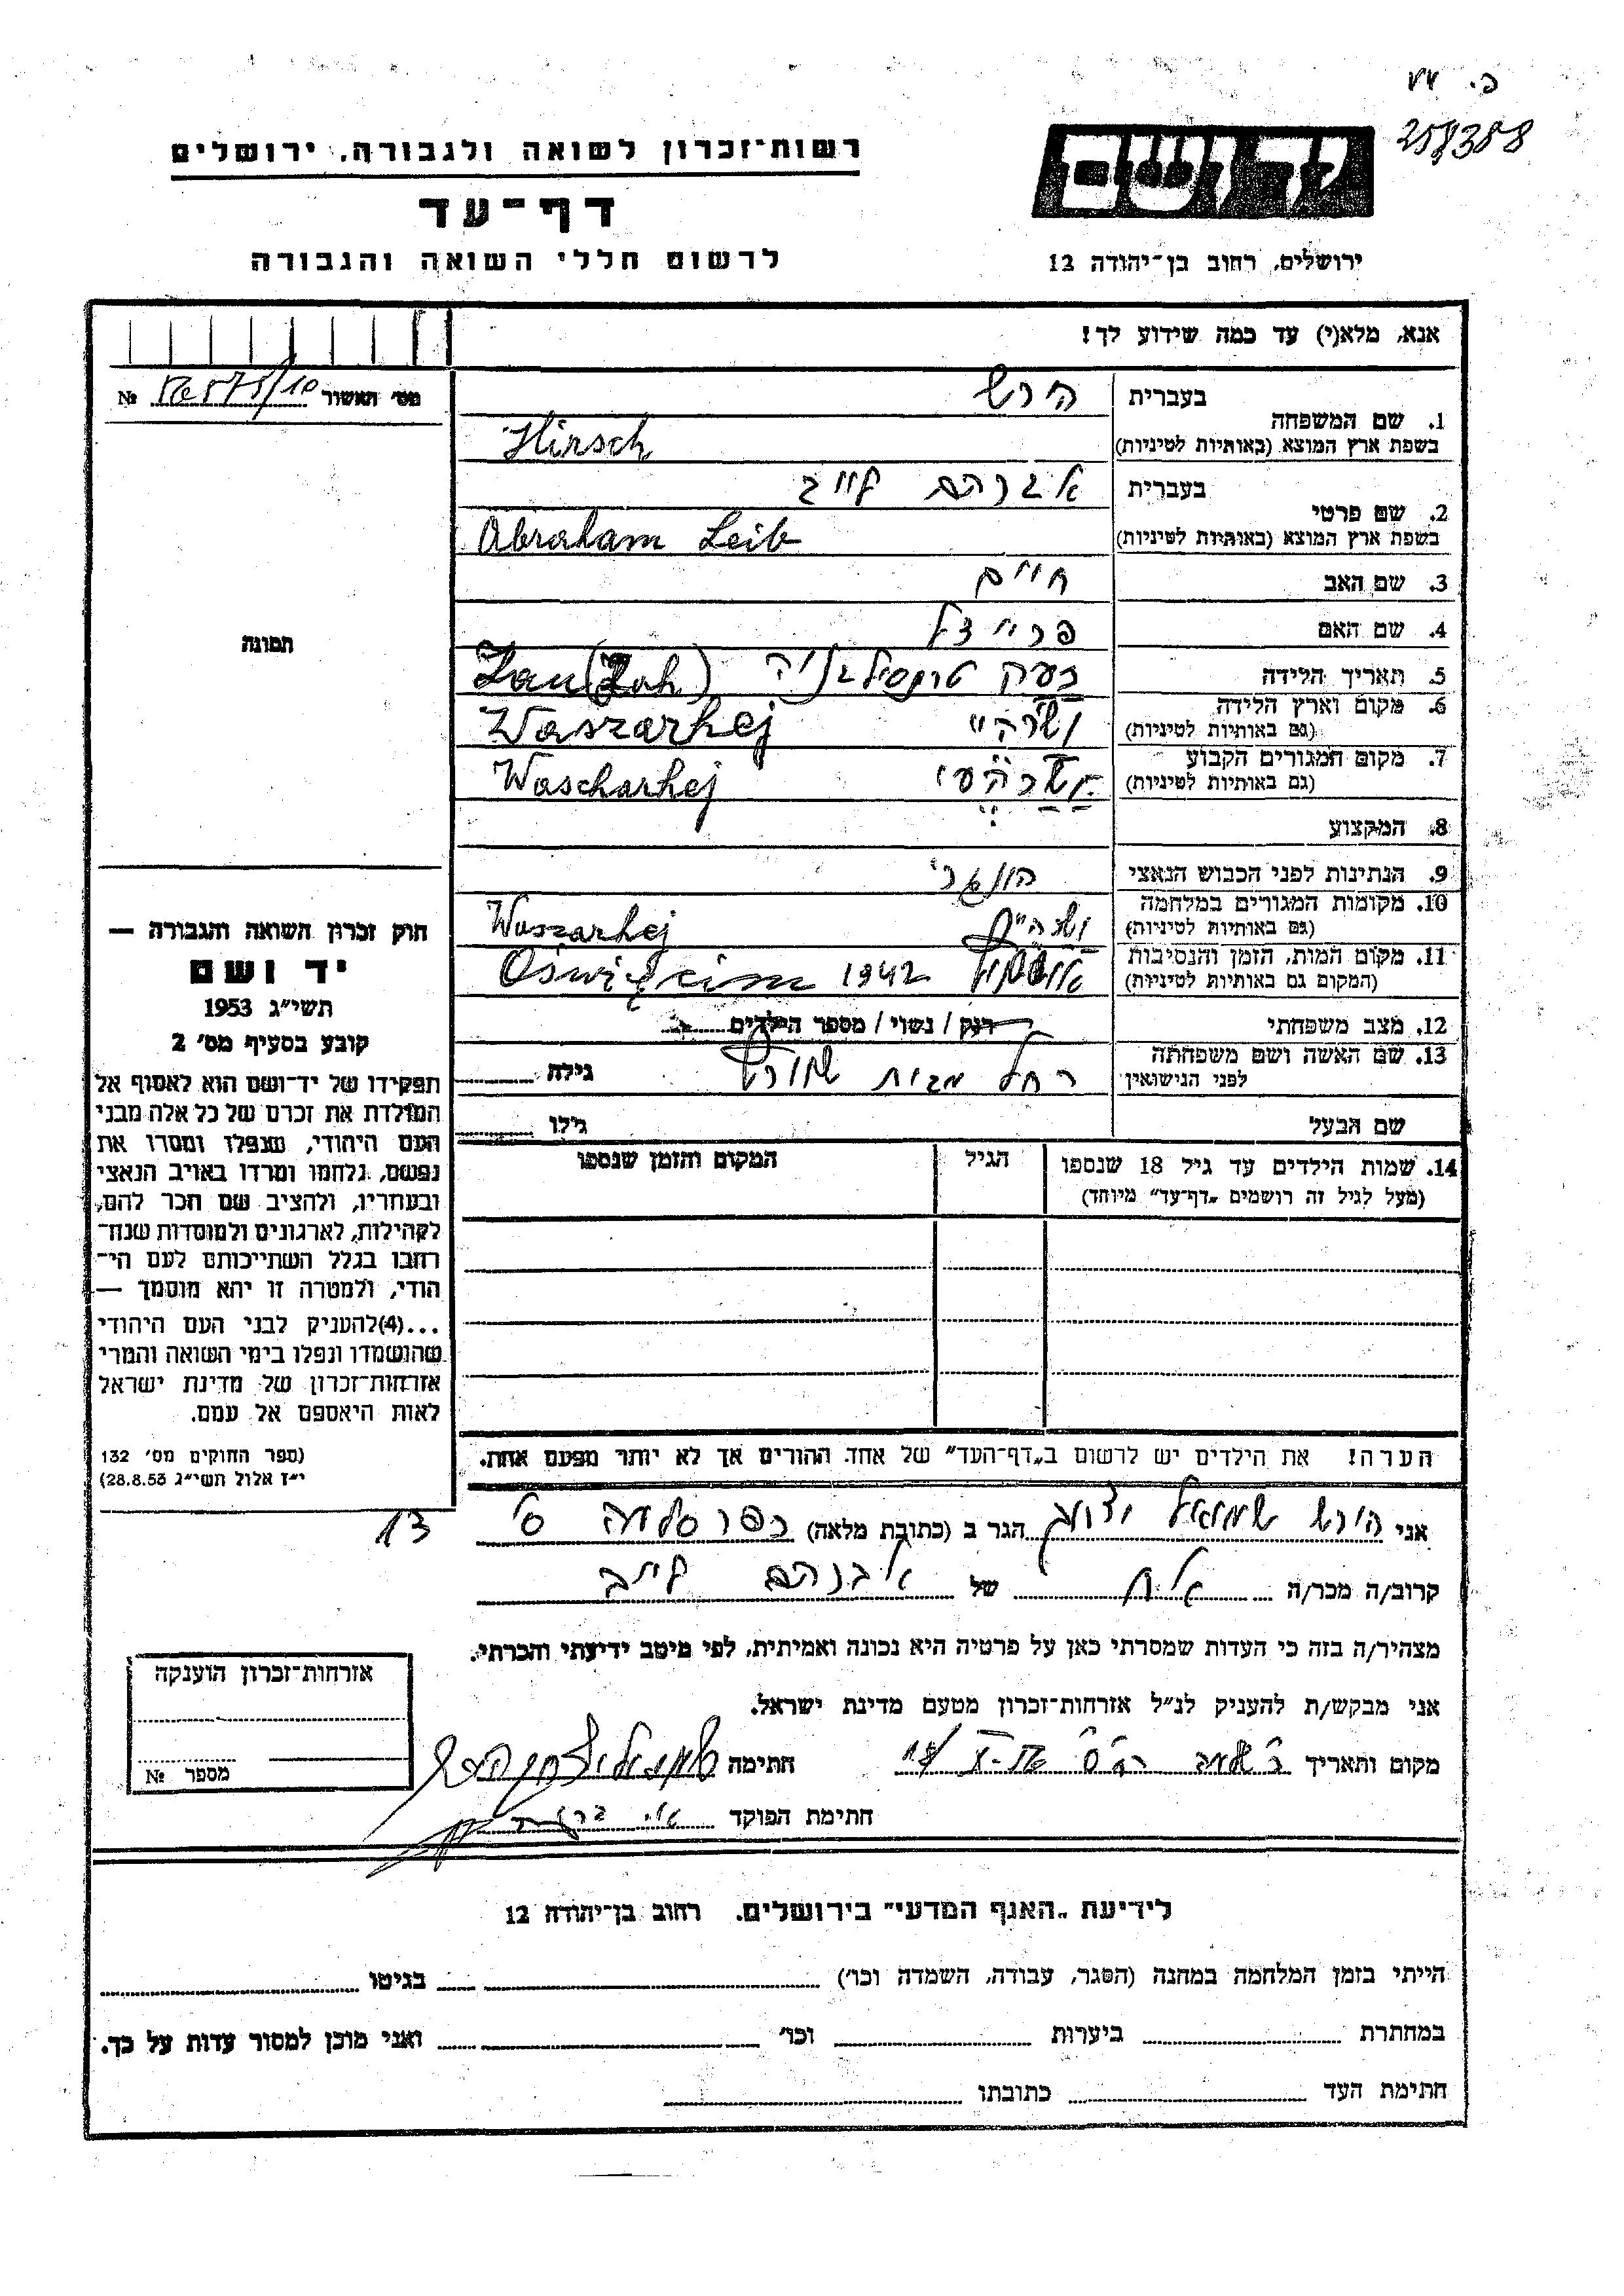 פ. 77
258388
רשות־זכרון לשואה ולגבורה, ירושלים
דף־עד
לרשום חללי השואה והגבורה
יד ושם
ירושלים, רחוב בן־יהודה 12
אנא, מלא(י) עד כמה שידוע לך!
מס׳ האשור №
בעברית הירש
1. שם המשפחה
בשפת ארץ המוצא (באותיות לטיניות) Hirsch
בעברית אברהם לייב
2. שם פרטי
בשפת ארץ המוצא (באותיות לטיניות) Abraham Leib
3. שם האב חיים
4. שם האם פריידל
5. תאריך הלידה
6. מקום וארץ הלידה
(גם באותיות לטיניות) Waszarhej
7. מקום המגורים הקבוע
(גם באותיות לטיניות) Woscharhej
8. המקצוע
9. הנתינות לפני הכבוש הנאצי הונגרי
10. מקומות המגורים במלחמה
(גם באותיות לטיניות) Waszarhej
11. מקום המות, הזמן והנסיבות
(המקום גם באותיות לטיניות) Oświęcim 1942
12. מצב משפחתי רוק / נשוי / מספר הילדים
13. שם האשה ושם משפחתה
לפני הנישואין רחל מבית שוורץ גילה
שם הבעל גילו
14. שמות הילדים עד גיל 18 שנספו הגיל המקום והזמן שנספו
(מעל לגיל זה רושמים „דף־עד” מיוחד)
הערה! את הילדים יש לרשום ב„דף־העד” של אחד ההורים אך לא יותר מפעם אחת.
תמונה
חוק זכרון השואה והגבורה —
יד ושם
תשי״ג 1953
קובע בסעיף מס׳ 2
תפקידו של יד־ושם הוא לאסוף אל
המולדת את זכרם של כל אלה מבני
העם היהודי, שנפלו ומסרו את
נפשם, נלחמו ומרדו באויב הנאצי
ובעוזריו, ולהציב שם וזכר להם,
לקהילות, לארגונים ולמוסדות שנח־
רבו בגלל השתייכותם לעם הי־
הודי, ולמטרה זו יהא מוסמך —
...(4)להעניק לבני העם היהודי
שהושמדו ונפלו בימי השואה והמרי
אזרחות־זכרון של מדינת ישראל
לאות היאספם אל עמם.
(ספר החוקים מס׳ 132
י״ז אלול תשי״ג 28.8.53)
אני הירש שמואל הגר ב (כתובת מלאה) 13
קרוב/ה מכר/ה אח של אברהם לייב
מצהיר/ה בזה כי העדות שמסרתי כאן על פרטיה היא נכונה ואמיתית, לפי מיטב ידיעתי והכרתי.
אני מבקש/ת להעניק לנ״ל אזרחות־זכרון מטעם מדינת ישראל.
מקום ותאריך חתימה
חתימת הפוקד
אזרחות־זכרון הוענקה
מספר №
לידיעת „האגף המדעי” בירושלים, רחוב בן־יהודה 12
הייתי בזמן המלחמה במחנה (הסגר, עבודה, השמדה וכו׳) בגיטו
במחתרת ביערות וכו׳ ואני מוכן למסור עדות על כך.
חתימת העד כתובתו